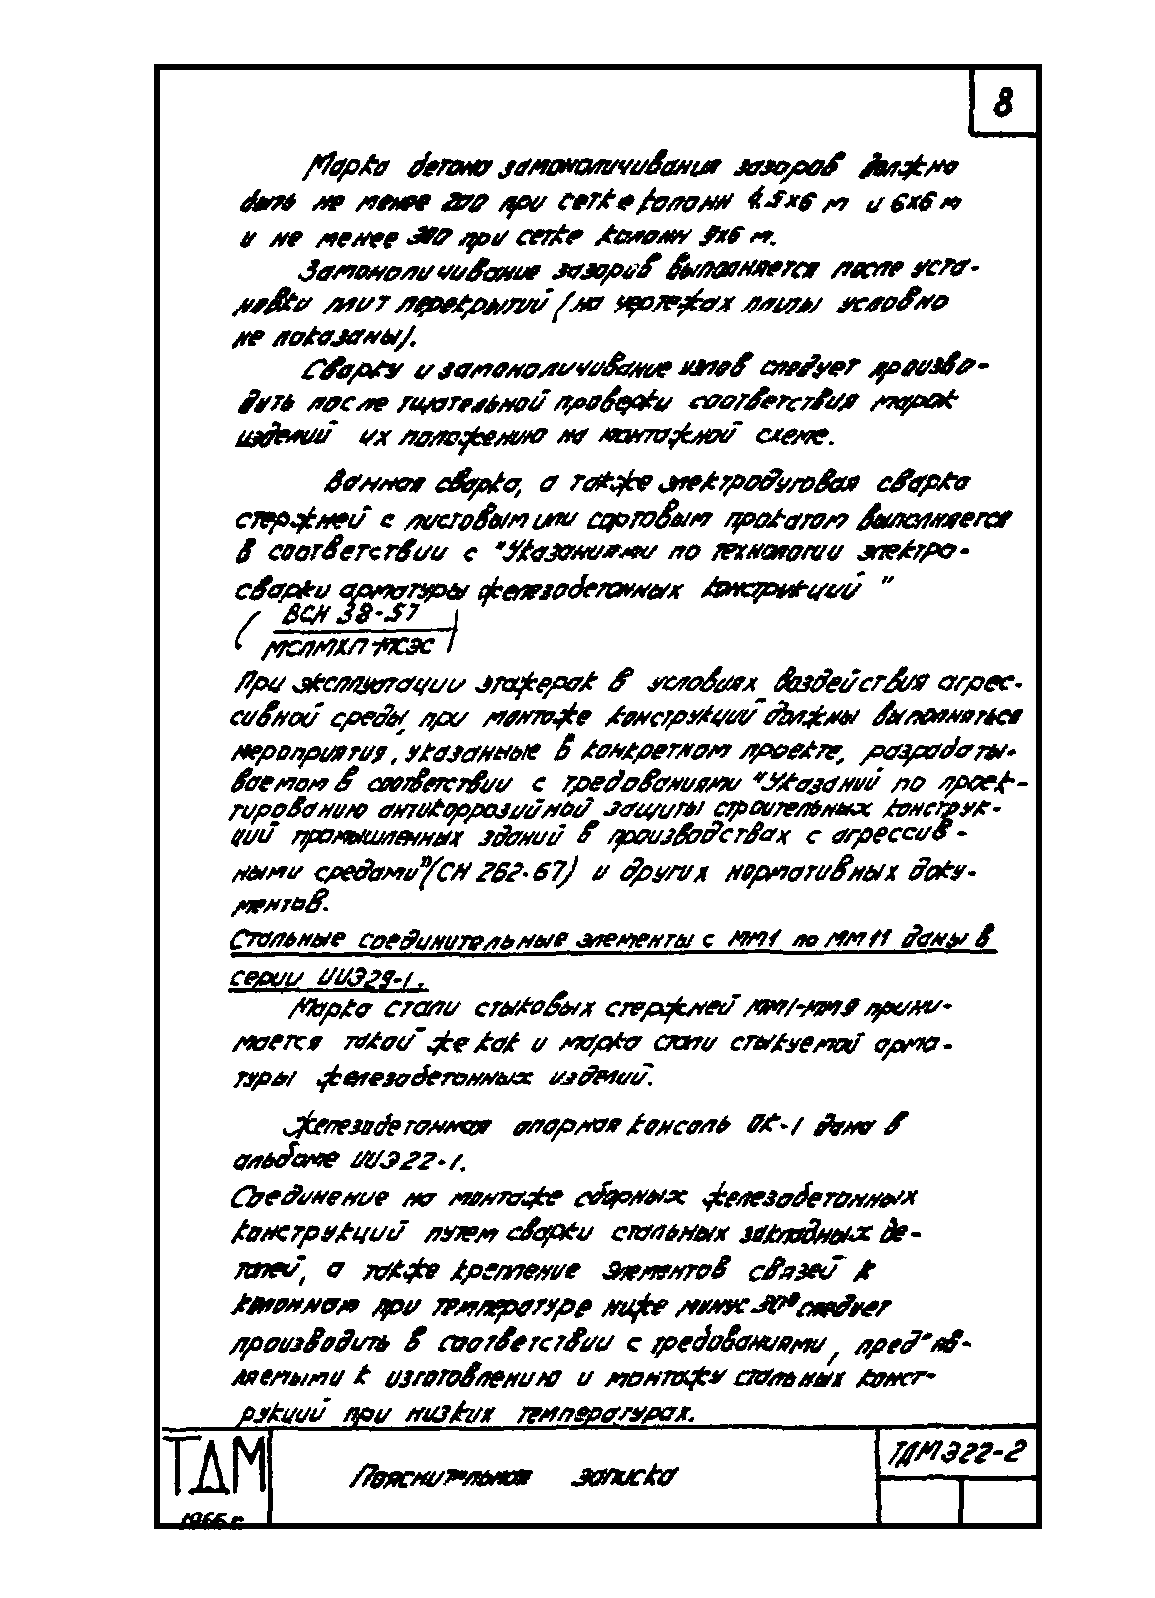 8
Марка бетона замоноличивания зазоров должна
быть не менее 200 при сетке колонн 4.5х6 м и 6х6 м
и не менее 300 при сетке колонн 9х6 м.
Замоноличивание зазоров выполняется после уста-
новки плит перекрытий (на чертежах плиты условно
не показаны).
Сварку и замоноличивание узлов следует произво-
дить после тщательной проверки соответствия марок
изделий их положению на монтажной схеме.
Ванная сварка, а также электродуговая сварка
стержней с листовым или сортовым прокатом выполняется
в соответствии с "Указаниями по технологии электро-
сварки арматуры железобетонных конструкций"
(ВСН 38-57
МСПМХП-МСЭС)
При эксплуатации этажерок в условиях воздействия агрес-
сивной среды, при монтаже конструкций должны выполняться
мероприятия, указанные в конкретном проекте, разрабаты-
ваемом в соответствии с требованиями "Указаний по проек-
тированию антикоррозийной защиты строительных конструк-
ций промышленных зданий в производствах с агрессив-
ными средами" (СН 262-67) и других нормативных доку-
ментов.
Стальные соединительные элементы с ММ1 по ММ11 даны в
серии ИИЭ29-1.
Марка стали стыковых стержней ММ1-ММ9 прини-
мается такой же как и марка стали стыкуемой арма-
туры железобетонных изделий.
Железобетонная опорная консоль ОК-1 дана в
альбоме ИИЭ22-1.
Соединение на монтаже сборных железобетонных
конструкций путем сварки стальных закладных де-
талей, а также крепление элементов связей к
колоннам при температуре ниже минус 30° следует
производить в соответствии с требованиями, пред"яв-
ляемыми к изготовлению и монтажу стальных конст-
рукций при низких температурах.
ТДМ
1966 г.
Пояснительная записка
ТДМ Э22-2